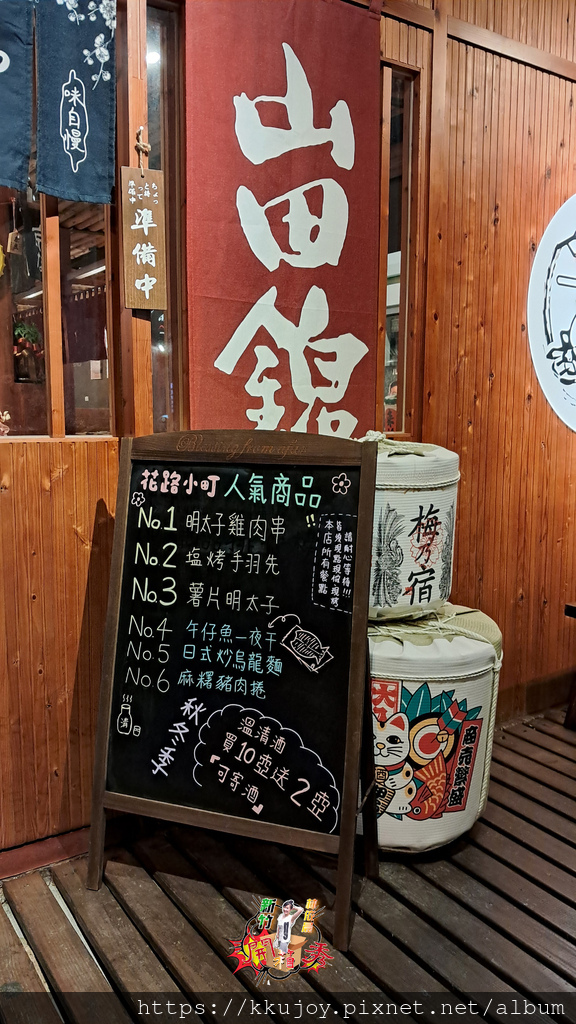 味自慢
ちょっと待って
準備中
準備中
山田錦
花路小町 人氣商品
No.1 明太子雞肉串
No.2 塩烤手羽先
No.3 薯片明太子
No.4 午仔魚一夜干
No.5 日式炒烏龍麵
No.6 麻糬豬肉捲
請耐心等待!!!
本店所有餐點
秋冬季
溫清酒
買10壺送2壺
『可寄酒』
酒
梅乃宿
商売繁盛
新竹
開箱秀
https://kkujoy.pixnet.net/album